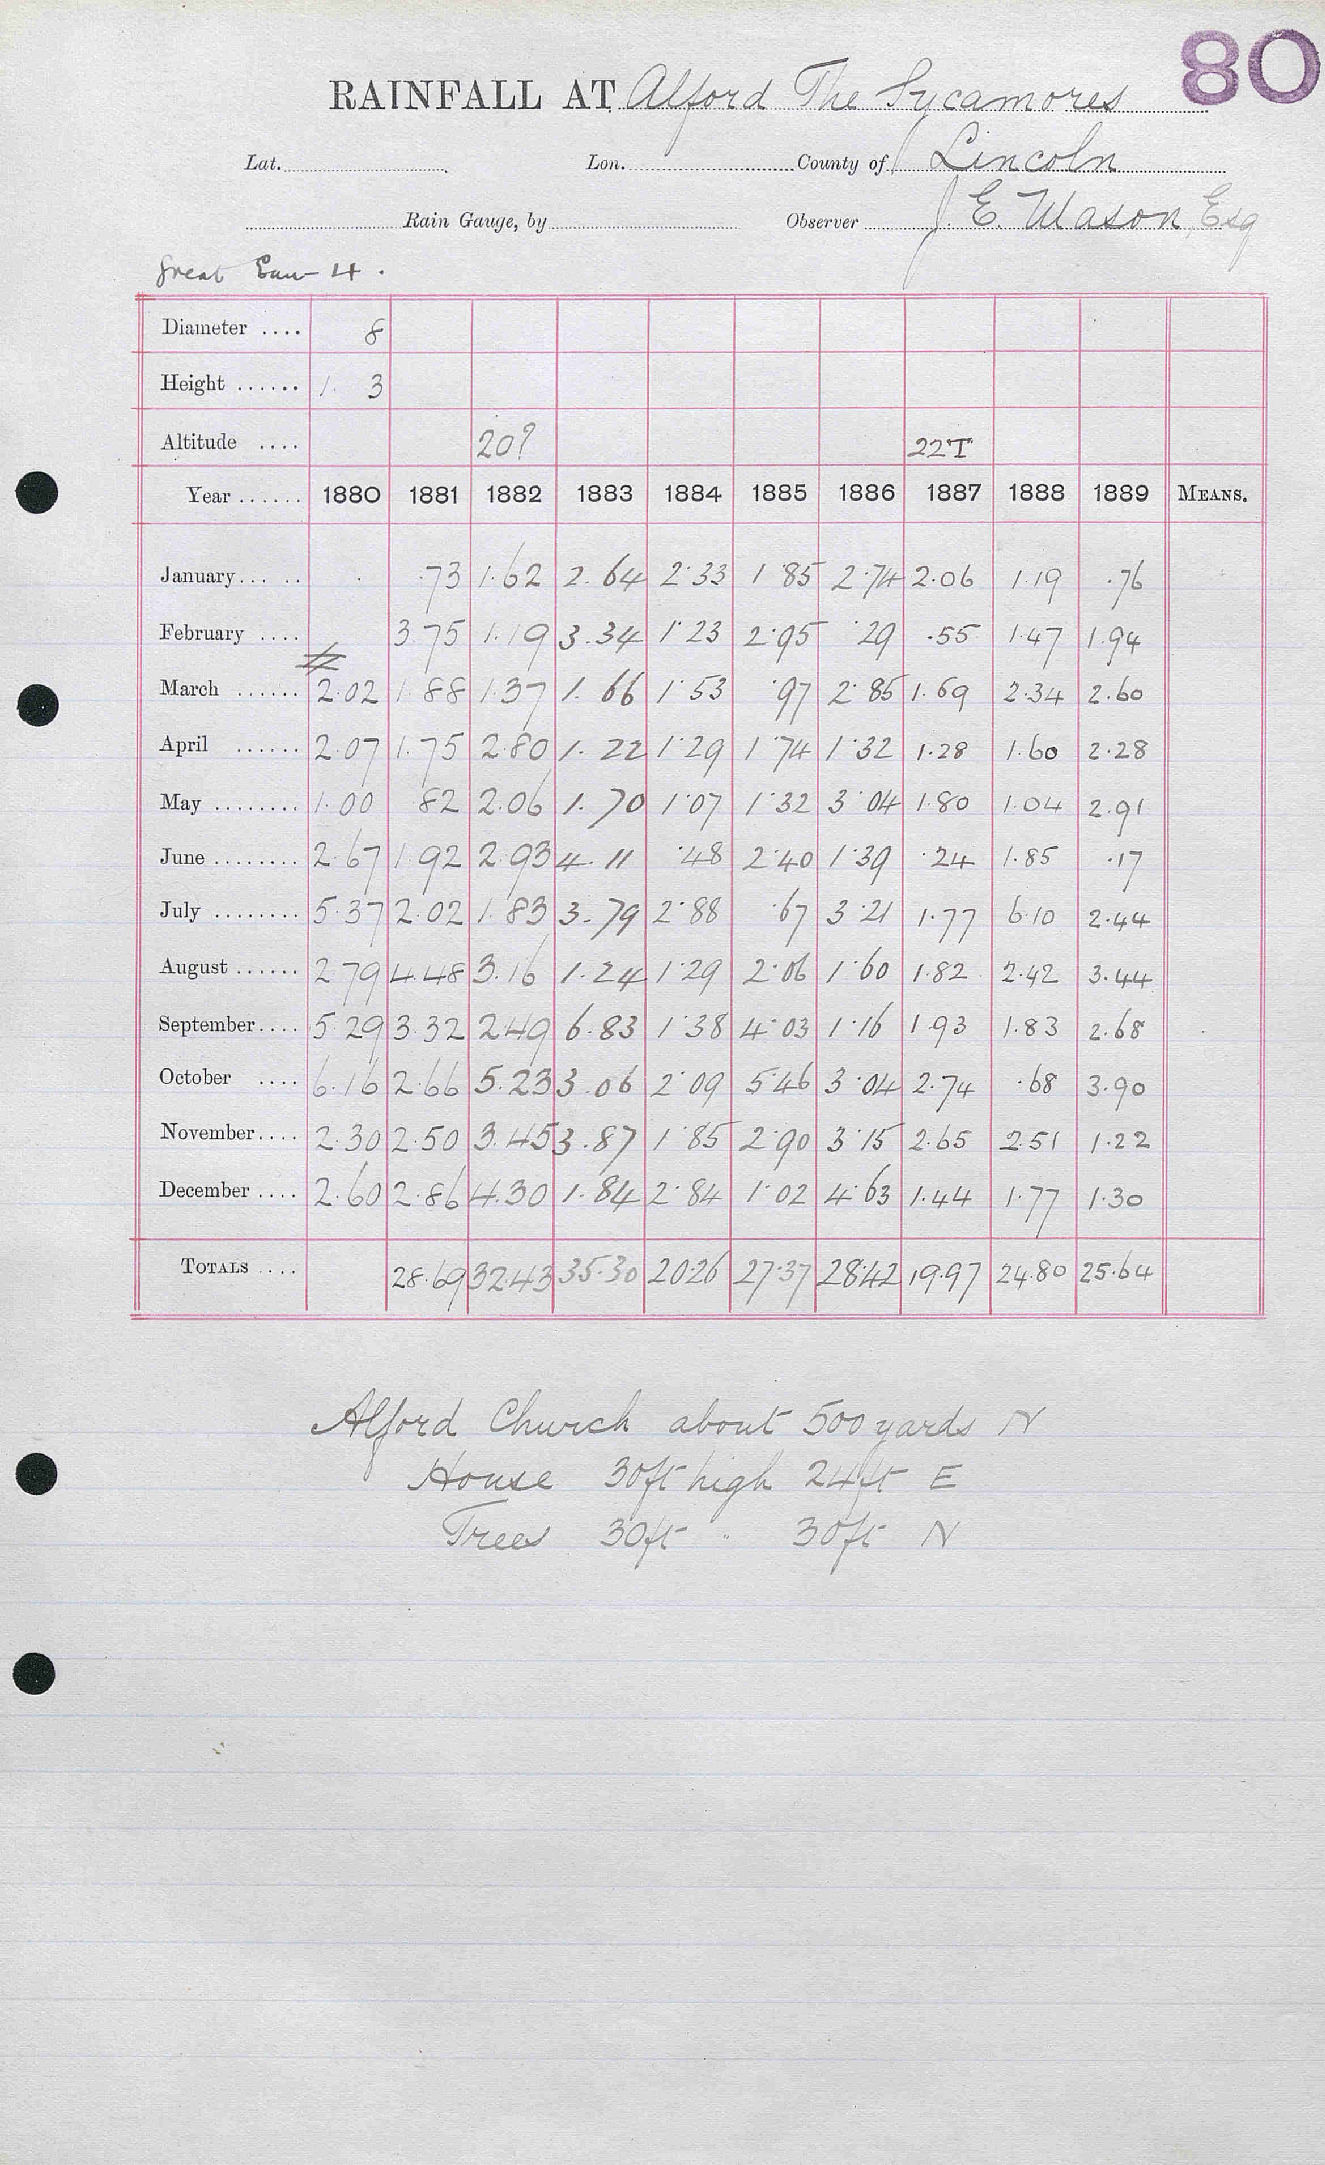 80
RAINFALL AT Alford The Sycamores
Lat. Lon. County of Lincoln
Rain Gauge, by Observer J. E. Mason, Esq
Great Eau 4.
Diameter .... 8
Height ...... 1. 3
Altitude .... 20? 22T
Year ...... 1880 1881 1882 1883 1884 1885 1886 1887 1888 1889 MEANS.
January... .. .73 1.62 2.64 2.33 1.85 2.74 2.06 1.19 .76
February .... 3.75 1.19 3.34 1.23 2.95 .29 .55 1.47 1.94
March ...... 2.02 1.88 1.37 1.66 1.53 .97 2.85 1.69 2.34 2.60
April ...... 2.07 1.75 2.80 1.22 1.29 1.74 1.32 1.28 1.60 2.28
May ........ 1.00 .82 2.06 1.70 1.07 1.32 3.04 1.80 1.04 2.91
June ........ 2.67 1.92 2.93 4.11 .48 2.40 1.39 .24 1.85 .17
July ........ 5.37 2.02 1.83 3.79 2.88 .67 3.21 1.77 6.10 2.44
August ...... 2.79 4.48 3.16 1.24 1.29 2.06 1.60 1.82 2.42 3.44
September.... 5.29 3.32 2.49 6.83 1.38 4.03 1.16 1.93 1.83 2.68
October .... 6.16 2.66 5.23 3.06 2.09 5.46 3.04 2.74 .68 3.90
November.... 2.30 2.50 3.45 3.87 1.85 2.90 3.15 2.65 2.51 1.22
December .... 2.60 2.86 4.30 1.84 2.84 1.02 4.63 1.44 1.77 1.30
TOTALS .... 28.69 32.43 35.30 20.26 27.37 28.42 19.97 24.80 25.64
Alford Church about 500 yards N
House 30ft high 24ft E
Trees 30ft " 30ft N